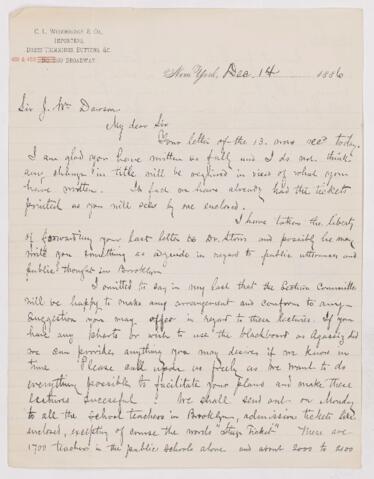 C. L. Woodbridge & Co.
IMPORTERS
DRESS TRIMMINGS, BUTTONS, &C
BROADWAY
New York, Dec. 14 1886
Sir J. Wm Dawson
My dear Sir
Your letter of the 13. was rec'd today.
I am glad you have written so fully and I do not think
any change in title will be required in view of what you
have written. In fact we have already had the tickets
printed as you will see by one enclosed.
I have taken the liberty
of forwarding your last letter to Dr. Storrs and possibly he may
write you something as regards in regard to public utterances and
public thought in Brooklyn
I omitted to say in my last that the Lecture Committee
will be happy to make any arrangement and conform to any
suggestion you may offer in regard to these lectures. If you
have any charts or wish to use the blackboard as Agassiz did
we can provide anything you may desire if we know in
time. Please call upon us freely as we want to do
everything possible to facilitate your plans and make these
lectures successful. We shall send out on Monday
to all the school teachers in Brooklyn, admission tickets like
enclosed, excepting of course the words "Stage Ticket" There are
1700 teachers in the public schools alone and about 2000 to